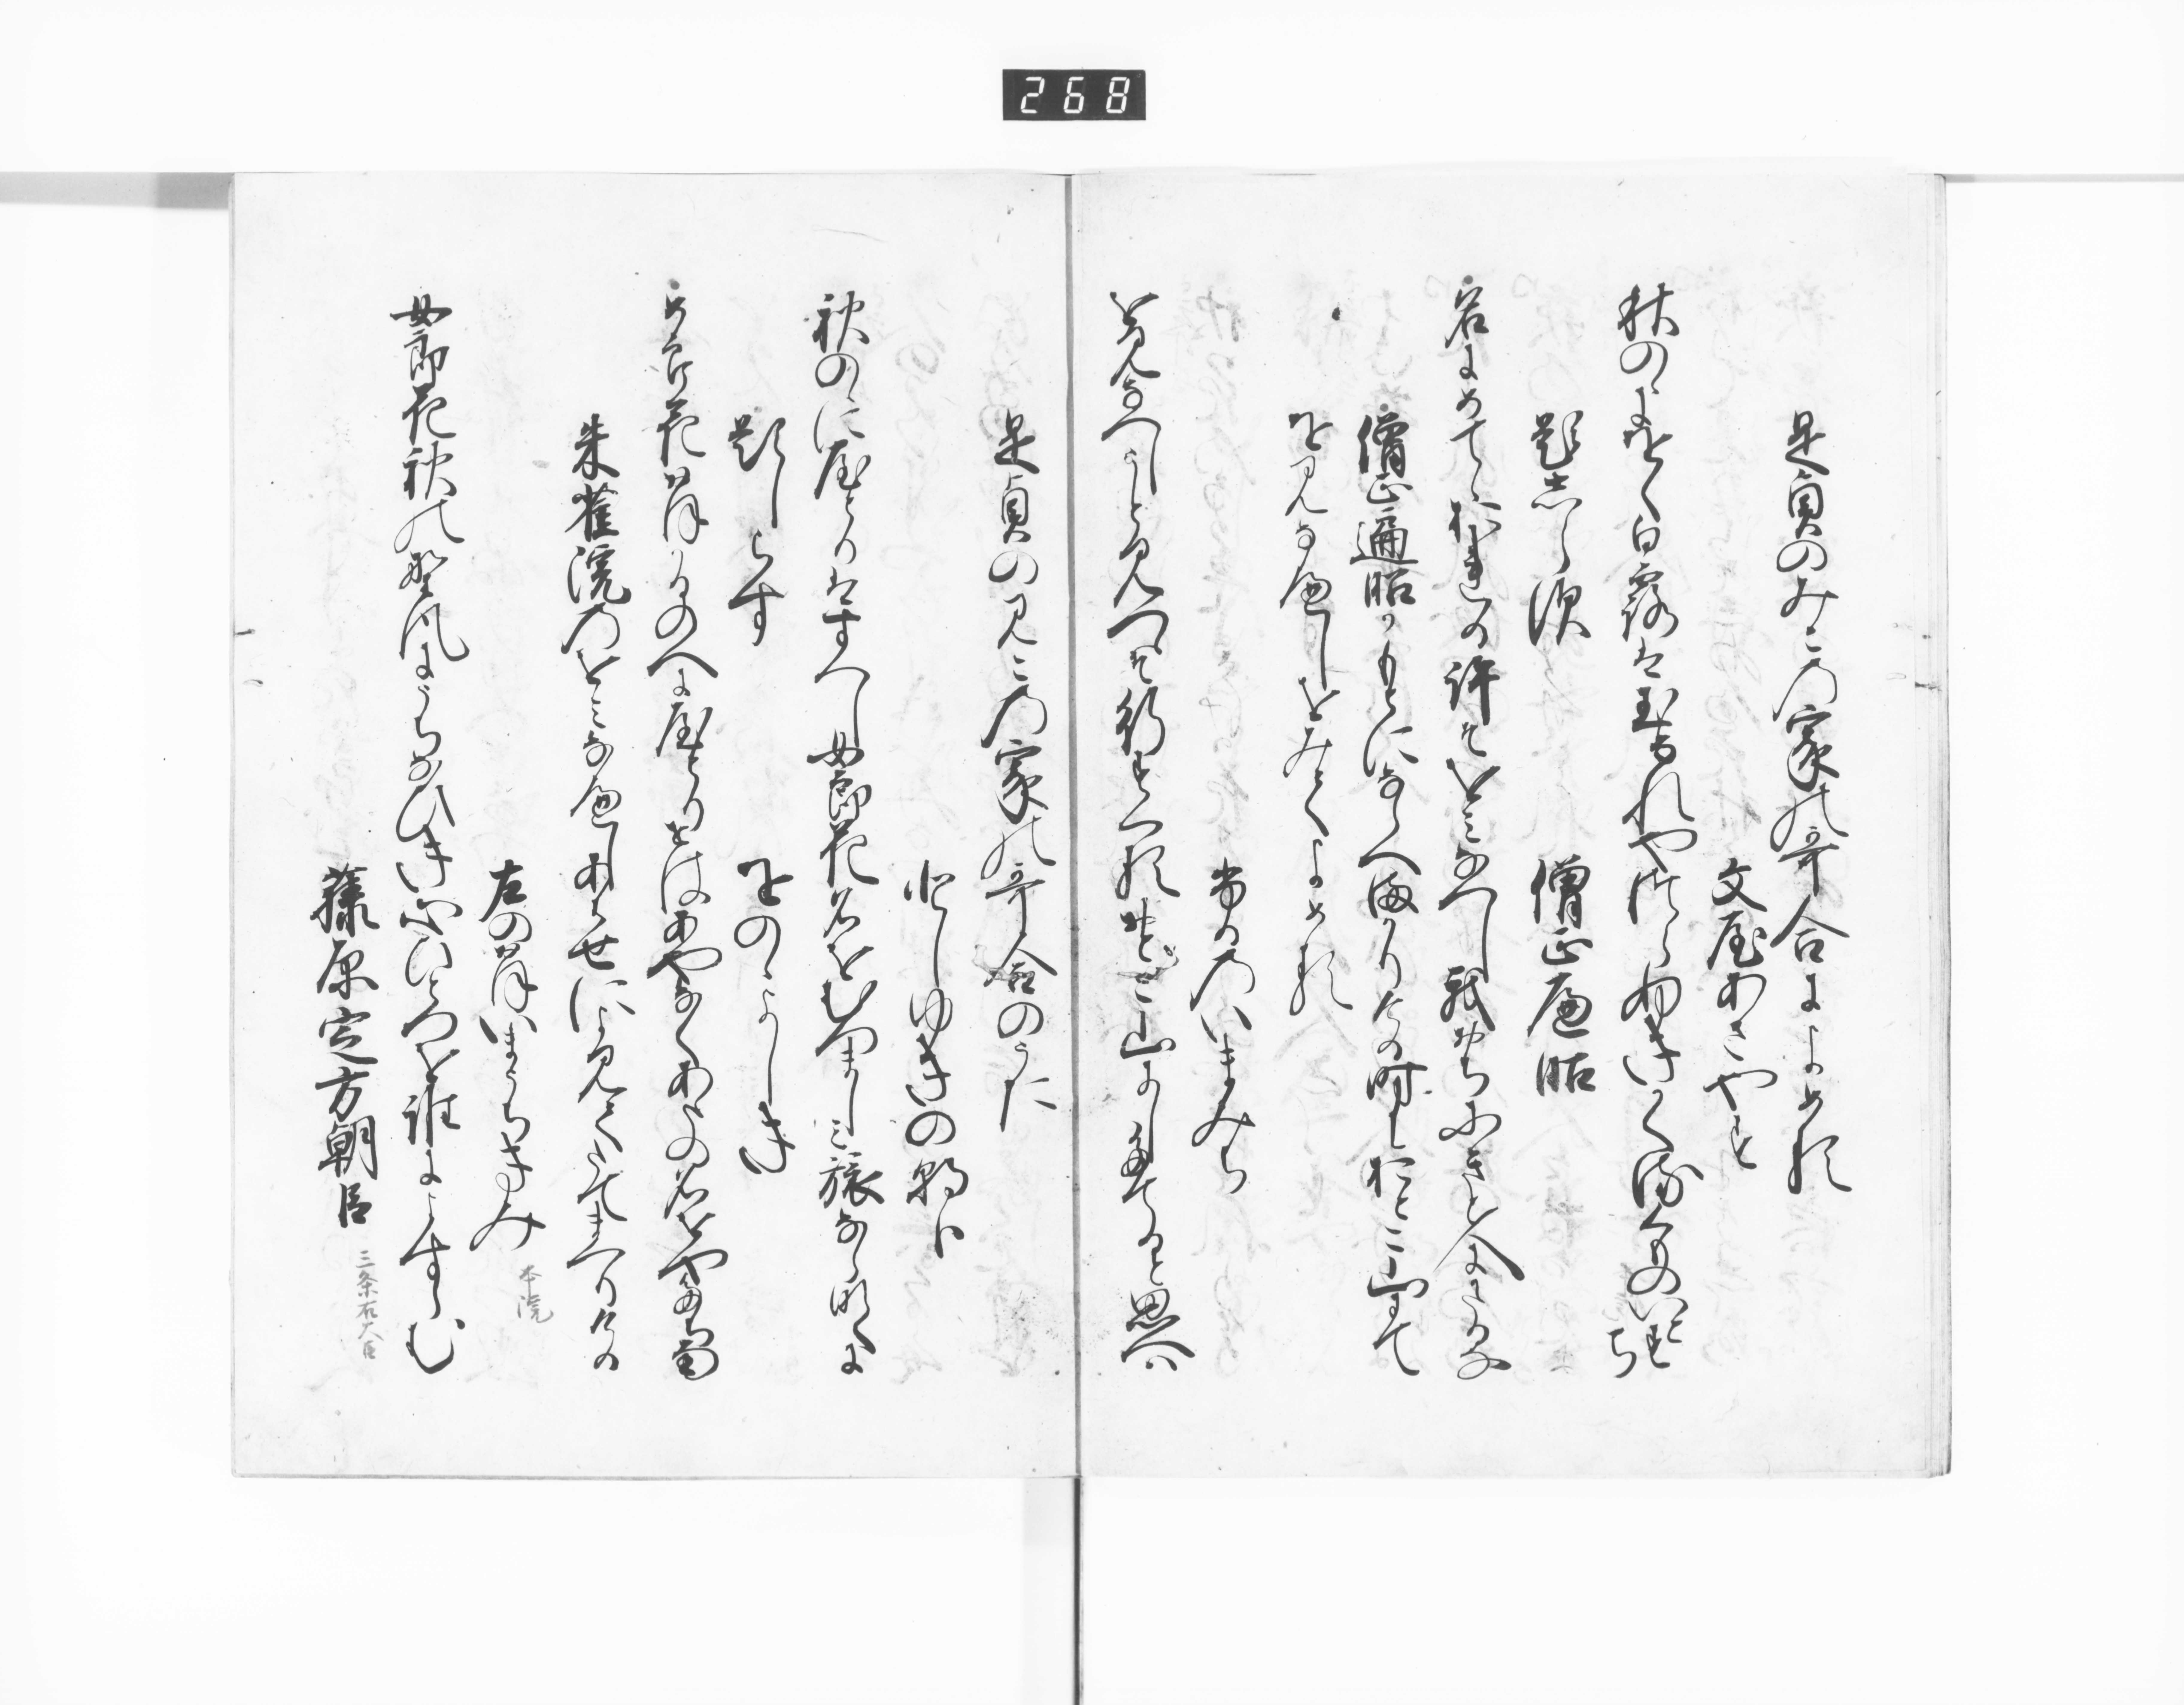 268
是貞のみこの家の哥合によめる
文屋あさやす
秋のゝにをく白露は玉なれやつらぬきかくるくものいとすち
題志らす
僧正遍昭
名にめてゝおれる許そをみなへし我おちにきと人にかたるな
僧正遍昭かもとにならへまかりける時におとこ山にて
をみなへしをみてよめる
ふるのいまみち
をみなへしうしと見つゝそ行すくるおとこ山にしたてりと思へは
是貞のみこの家の哥合のうた
としゆきの朝臣
秋のゝにやとりはすへし女郎花名をむつましみ旅ならなくに
題しらす
をのゝよしき
女郎花おほかるのへにやとりせはあやなくあたの名をやたちなん
朱雀院のをみなへしあはせによみてたてまつりける
左のおほいまうちきみ
本院
女郎花秋の野風にうちなひき心ひとつを誰によすらむ
藤原定方朝臣
三条右大臣